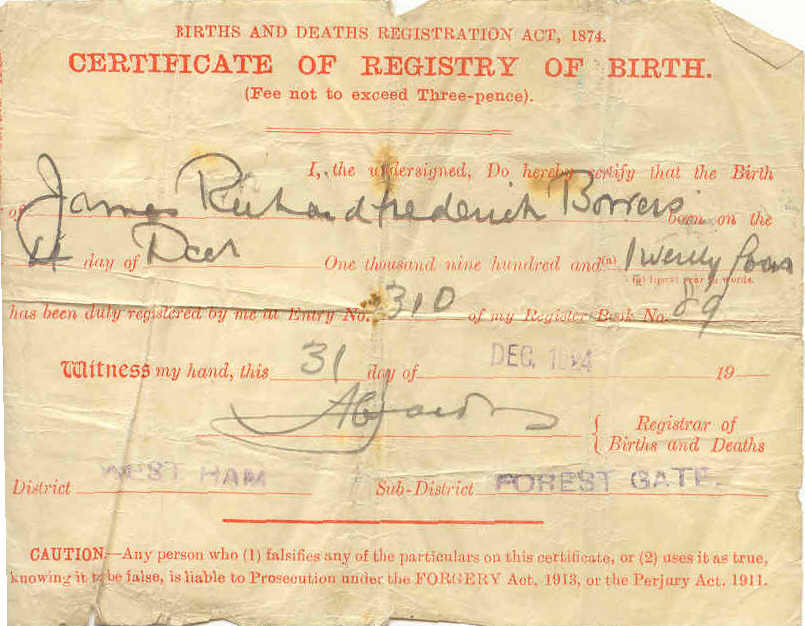 BIRTHS AND DEATHS REGISTRATION ACT, 1874.
CERTIFICATE OF REGISTRY OF BIRTH.
(Fee not to exceed Three-pence).
I, the undersigned, Do hereby certify that the Birth
of James Richard frederick born on the
day of Decr One thousand nine hundred and (a) Twenty four
(a) Insert year in words.
has been duly registered by me at Entry No. 310 of my Register Book No. 89
Witness my hand, this 31 day of DEC. 1924 19
Registrar of
Births and Deaths
District WEST HAM Sub-District FOREST GATE.
CAUTION.—Any person who (1) falsifies any of the particulars on this certificate, or (2) uses it as true,
knowing it to be false, is liable to Prosecution under the FORGERY Act, 1913, or the Perjury Act, 1911.